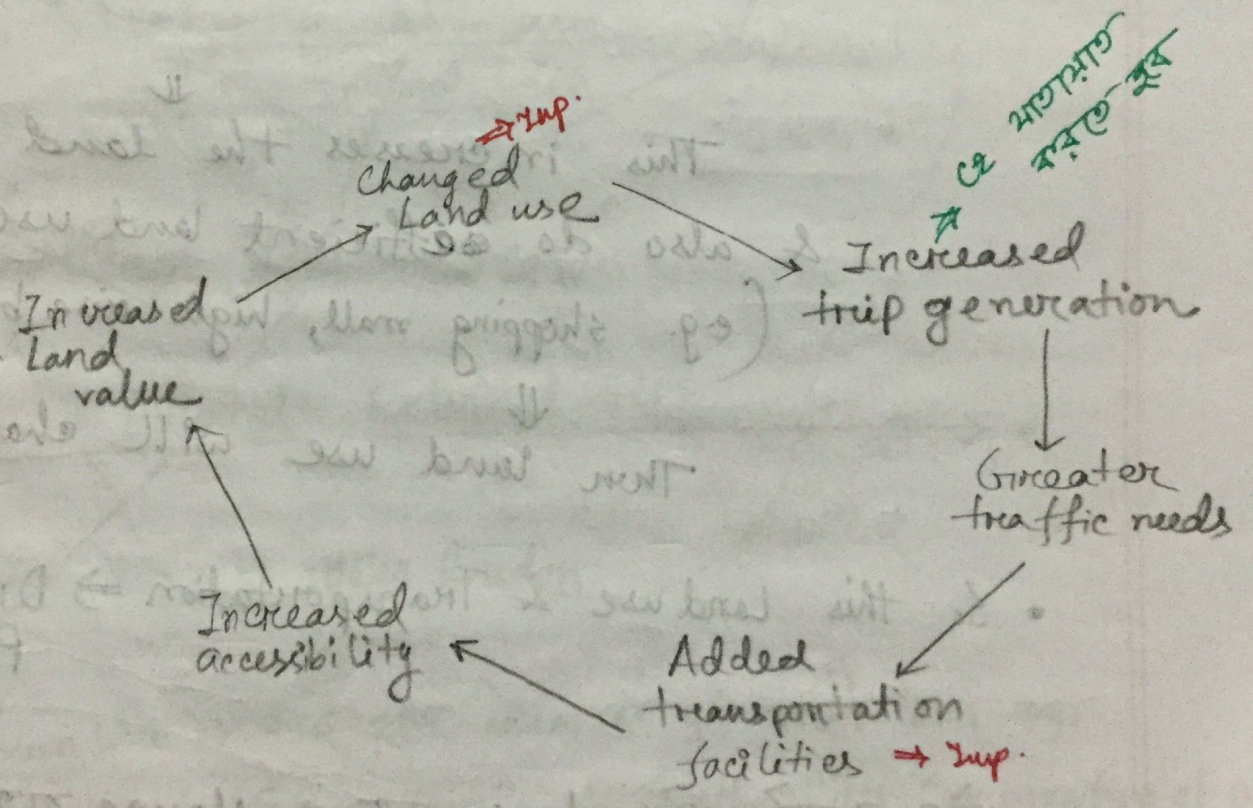 → Imp.
Changed
Land use
→ যে যাতায়াত
করতে
Increased
trip generation
Greater
traffic needs
Added
transportation
facilities → Imp.
Increased
accessibility
Increased
Land
value